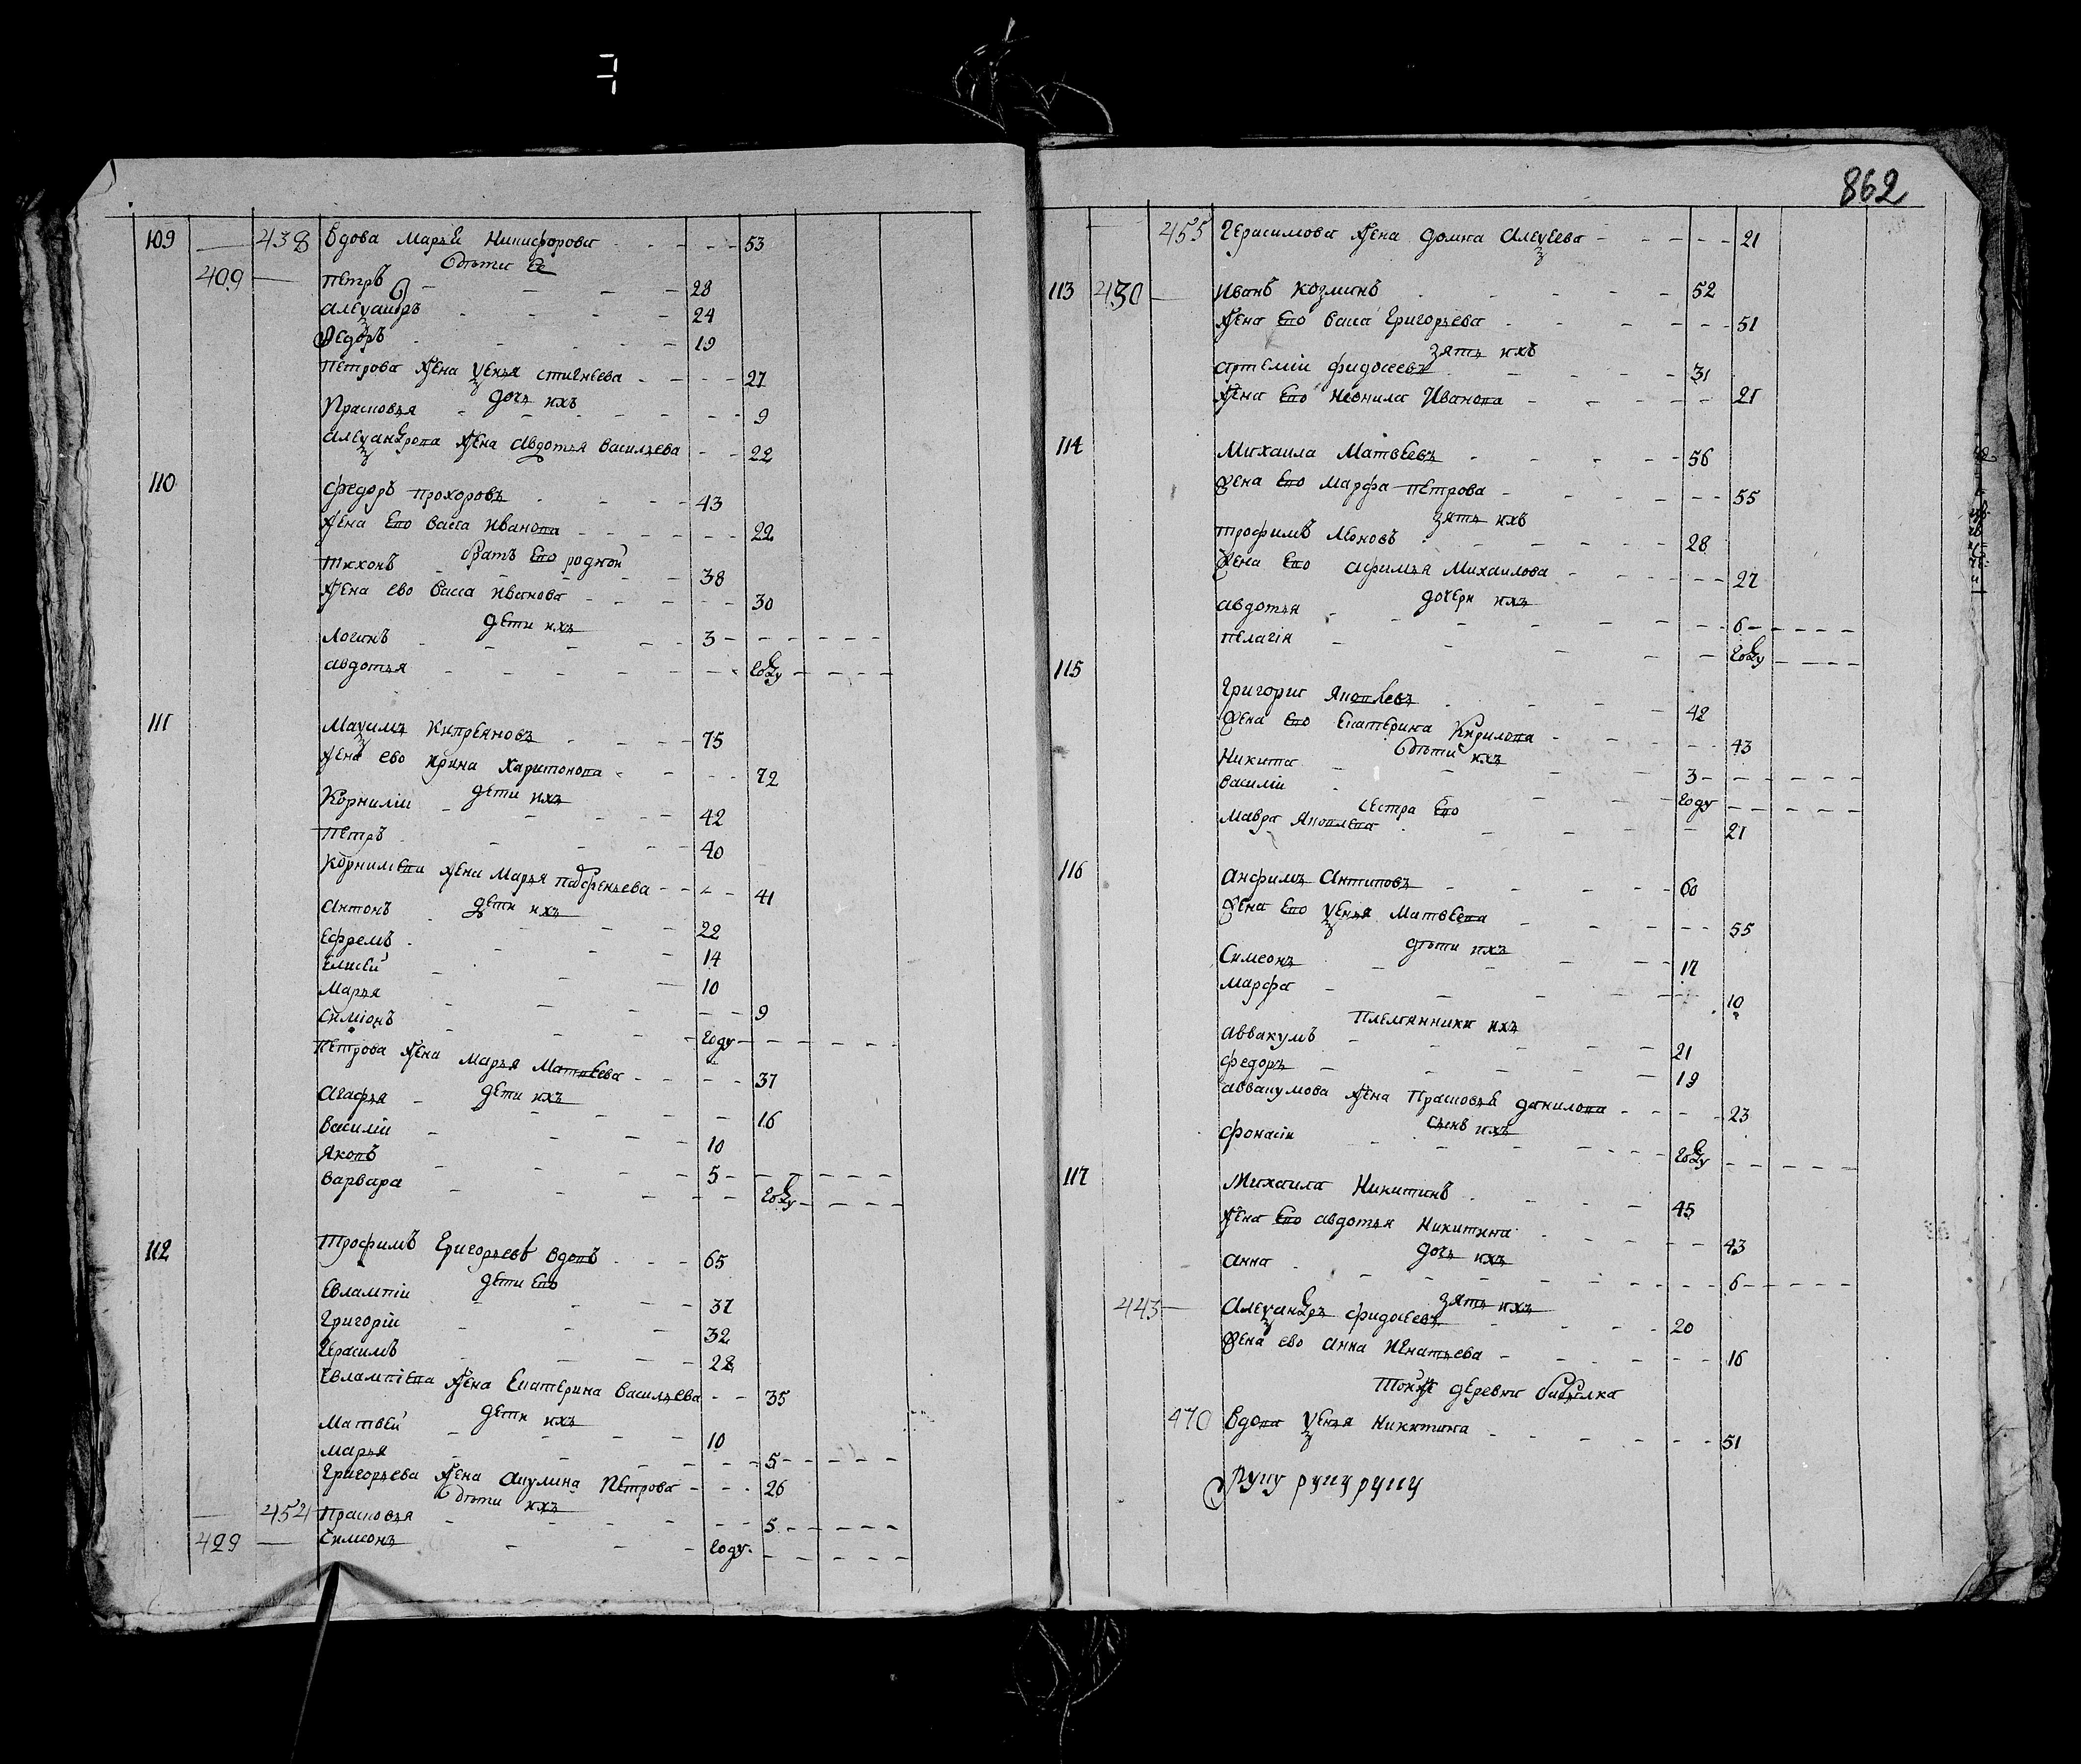 862
109 — 438 Вдова Марья Никифорова 53
дѣти ее
409 — Петръ 28
Александръ 24
Федоръ 19
Петрова жена Ксенья 27
дочь ихъ
Прасковья 9
Александрова жена Авдотья Васильева 22
110
Федоръ Прохоровъ 43
жена ево Васса Иванова 22
братъ ево родной
Тихонъ 38
жена ево Васса Иванова 30
дети ихъ
Логинъ 3
Авдотья году
111
Максимъ Кипреяновъ 75
жена ево Ирина Харитонова 72
дети ихъ
Корнилiи 42
Петръ 40
Корнилiева жена Марья Парфеньева 41
дети ихъ
Антонъ 22
Ефремъ 14
Елисеи 10
Марья 9
Симiонъ году
Петрова жена Марья Матвеева 37
дети ихъ
Агафья 16
Василiи 10
Яковъ 5
Варвара году
112
Трофимъ Григорьевъ вдовъ 65
дети ево
Евлампiи 37
Григорiи 32
Герасимъ 28
Евлампiева жена Екатерина Васильева 35
дети ихъ
Матвеи 10
Марья 5
Григорьева жена Акулина Петрова 26
дѣти ихъ
— 454 Прасковья 5
429 — Симеонъ году
— 455 Герасимова жена Домна Алексеева 21
113 430 — Иванъ Козминъ 52
жена ево Васса Григорьева 51
зять ихъ
Артемiи Фидосеевъ 31
жена ево Неонила Иванова 21
114
Михаила Матвеевъ 56
жена ево Марфа Петрова 55
зять ихъ
Трофимъ Моновъ 28
жена ево Афимья Михаилова 27
дочери ихъ
Авдотья 6
Пелагiя году
115
Григорiи Яковлевъ 42
жена ево Екатерина Кирилова 43
дѣти ихъ
Никита 3
Василiи году
сестра ево
Мавра Яковлева 21
116
Анфимъ Антиповъ 60
жена ево Ксенья Матвеева 55
дѣти ихъ
Симеонъ 17
Марфа 10
племянники ихъ
Аввакумъ 21
Федоръ 19
Аввакумова жена Прасковья Данилова 23
сынъ ихъ
Фонасiи году
117
Михаила Никитинъ 45
жена ево Авдотья Никитина 43
дочь ихъ
Анна 6
зять ихъ
443 — Александръ Фидосеевъ 20
жена ево Анна Игнатьева 16
тойже деревни бабылка
470 Вдова Ксенья Никитина 51